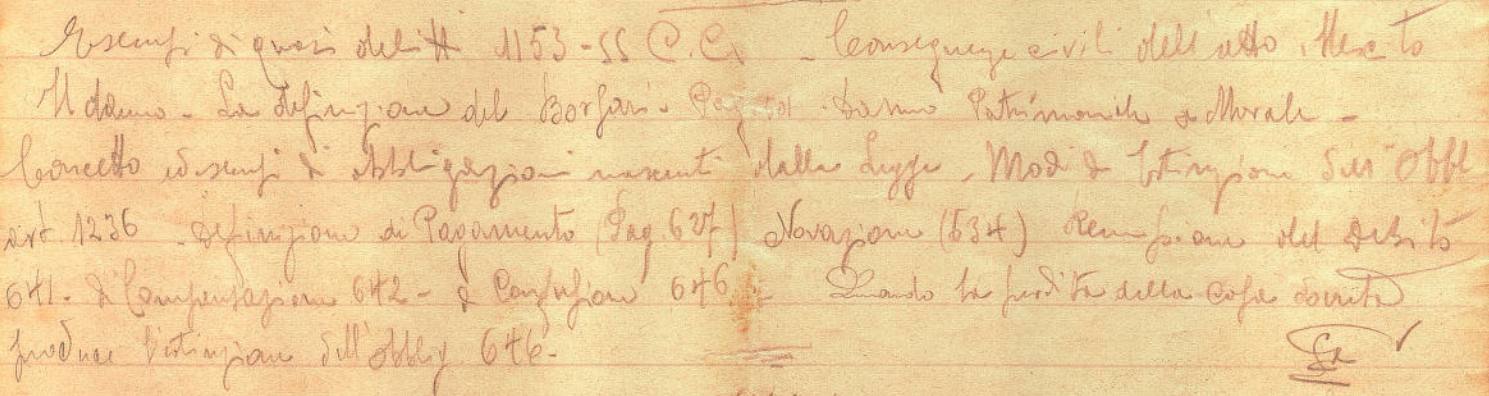 Esempi di quasi delitti 1153-55 C.C. - Conseguenze civili dell'atto illecito
Il danno - La definizione del Borsari - Danno Patrimoniale e Morale -
Concetto ed esempi di obbligazioni nascenti dalla Legge - Modi di Estinzione dell'Obbl
art 1236 - Definizione di Pagamento (Pag. 627) Novazione (634) Remissione del Debito
641 - di Compensazione 642 - di Confusione 646 - Quando la perdita della cosa dovuta
produce l'estinzione dell'obblig 646 -